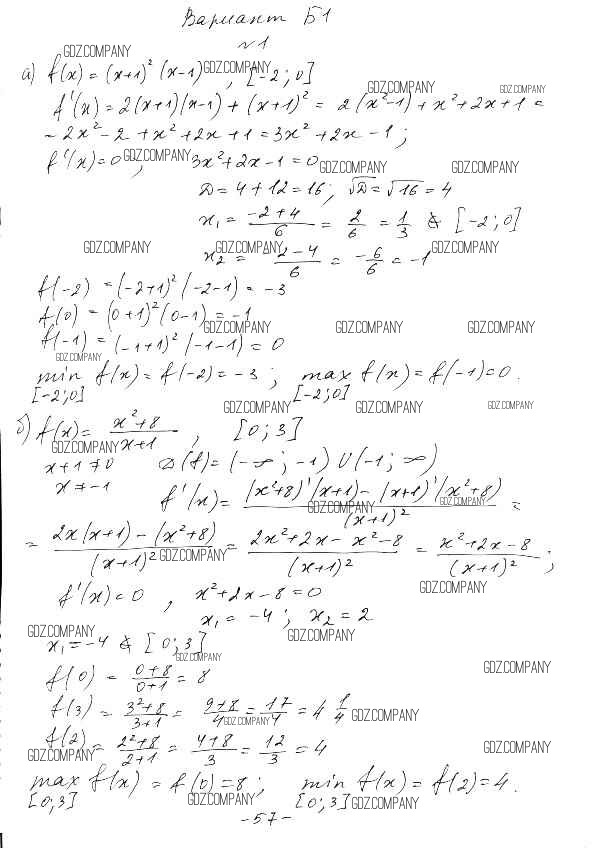 Вариант Б1
№1
а) f(x) = (x+1)² (x-1), [-2; 0]
f'(x) = 2(x+1)(x-1) + (x+1)² = 2(x²-1) + x²+2x+1 =
= 2x²-2+x²+2x+1 = 3x²+2x-1;
f'(x)=0, 3x²+2x-1=0
D = 4+12=16; √D = √16 = 4
x₁ = (-2+4)/6 = 2/6 = 1/3 ∉ [-2; 0]
x₂ = (-2-4)/6 = -6/6 = -1
f(-2) = (-2+1)² (-2-1) = -3
f(0) = (0+1)² (0-1) = -1
f(-1) = (-1+1)² (-1-1) = 0
min f(x) = f(-2) = -3; max f(x) = f(-1) = 0.
[-2;0] [-2;0]
б) f(x) = (x²+8)/(x+1), [0; 3]
x+1 ≠ 0 D(f) = (-∞; -1) U (-1; ∞)
x ≠ -1
f'(x) = ((x²+8)'(x+1) - (x+1)'(x²+8))/(x+1)² =
= (2x(x+1) - (x²+8))/(x+1)² = (2x²+2x-x²-8)/(x+1)² = (x²+2x-8)/(x+1)²;
f'(x)=0, x²+2x-8=0
x₁ = -4; x₂ = 2
x₁ = -4 ∉ [0; 3]
f(0) = (0+8)/(0+1) = 8
f(3) = (3²+8)/(3+1) = (9+8)/4 = 17/4 = 4 1/4
f(2) = (2²+8)/(2+1) = (4+8)/3 = 12/3 = 4
max f(x) = f(0) = 8; min f(x) = f(2) = 4.
[0;3] [0;3]
-57-